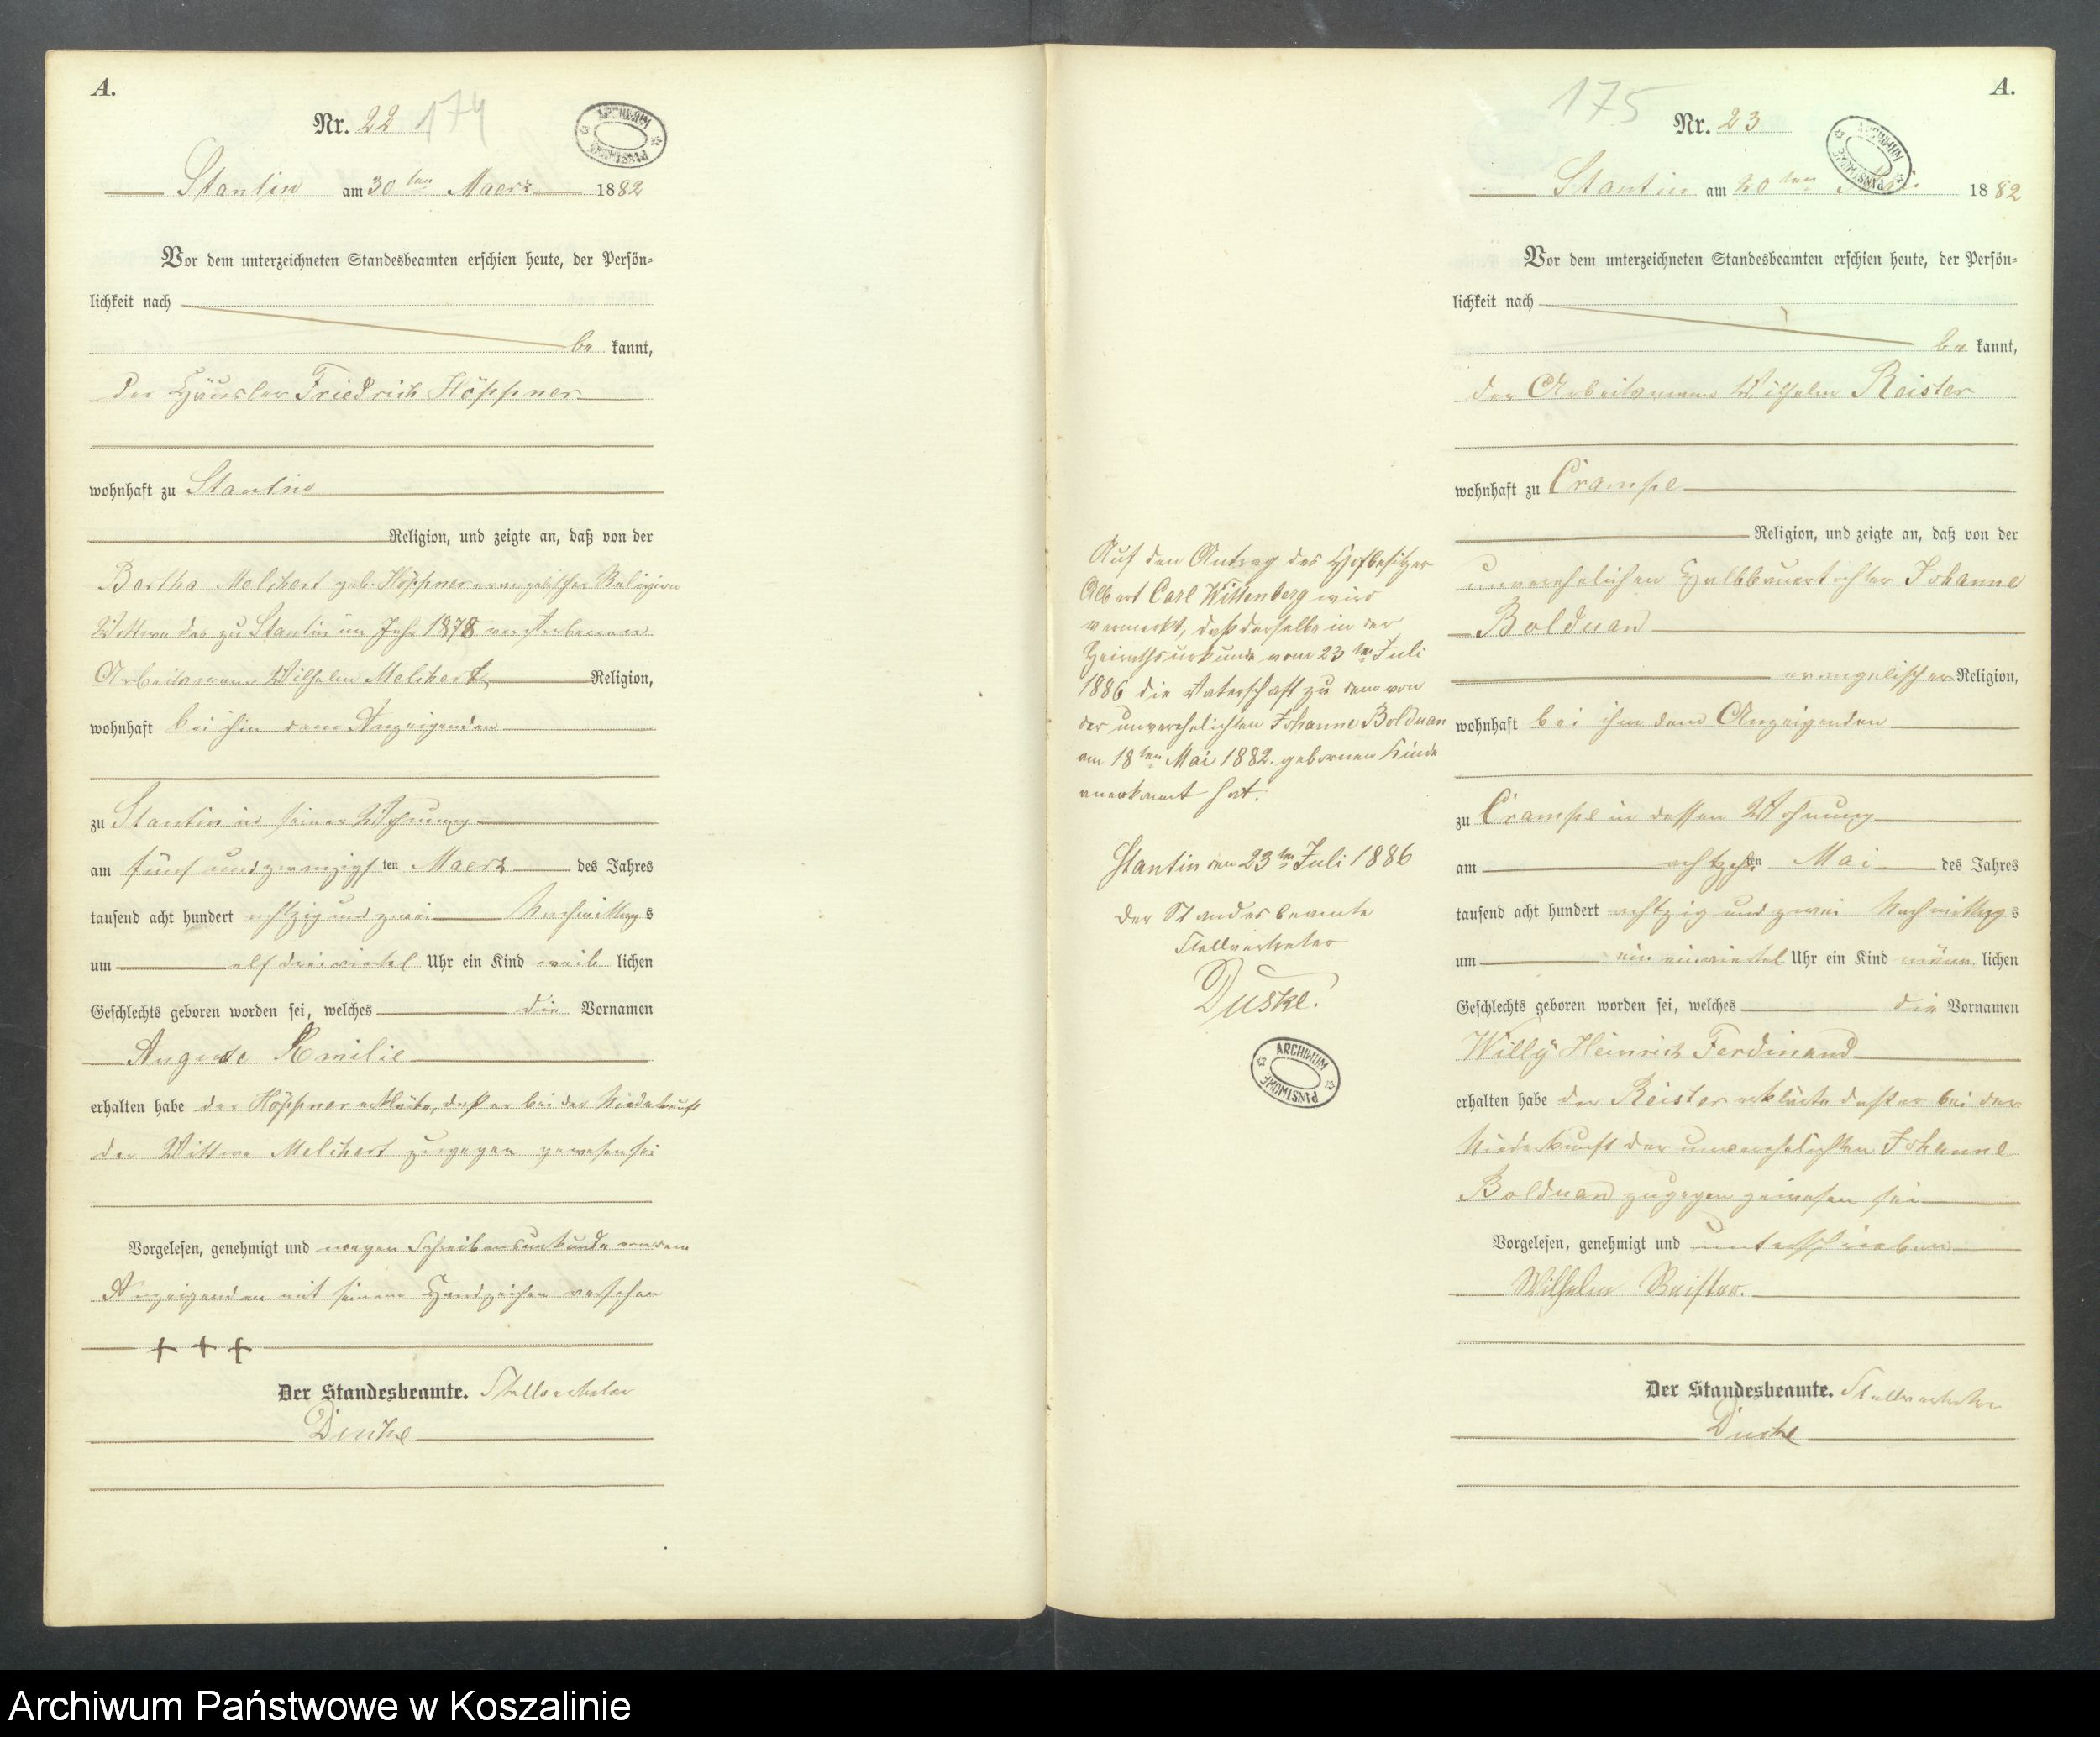 A.
Nr. 22 174
ARCHIWUM PAŃSTWOWE
Stantin am 30ten Maerz 1882
Vor dem unterzeichneten Standesbeamten erschien heute, der Persön-
lichkeit nach
be kannt,
der Häusler Friedrich Höppner
wohnhaft zu Stantin
Religion, und zeigte an, daß von der
Bertha Melchert geb. Höppner evangelischer Religion
Wittwe des zu Stantin im Jahr 1878 verstorbenen
Arbeitsmann Wilhelm Melchert, Religion,
wohnhaft bei ihm dem Anzeigenden
zu Stantin in seiner Wohnung
am fünf und zwanzigsten Maerz des Jahres
tausend acht hundert achtzig und zwei Nachmittags
um elf dreiviertel Uhr ein Kind weib lichen
Geschlechts geboren worden sei, welches die Vornamen
Auguste Emilie
erhalten habe der Höppner erklärte, daß er bei der Niederkunft
der Wittwe Melchert zugegen gewesen sei
Vorgelesen, genehmigt und wegen Schreibensunkunde von dem
Anzeigenden mit seinem Handzeichen versehen
+ + +
Der Standesbeamte. Stellvertreter
Duske
A.
175 Nr. 23
ARCHIWUM PAŃSTWOWE
Stantin am 20ten 1882
Vor dem unterzeichneten Standesbeamten erschien heute, der Persön-
lichkeit nach
be kannt,
der Arbeitsmann Wilhelm Reister
wohnhaft zu Crampe
Religion, und zeigte an, daß von der
unverehelichen Halbbauertochter Johanne
Bolduan
evangelischer Religion,
wohnhaft bei ihm dem Anzeigenden
zu Crampe in dessen Wohnung
am achtzehnten Mai des Jahres
tausend acht hundert achtzig und zwei Nachmittags
um ein einviertel Uhr ein Kind männ lichen
Geschlechts geboren worden sei, welches die Vornamen
Willy Heinrich Ferdinand
erhalten habe der Reister erklärte daß er bei der
Niederkunft der unverehelichten Johanne
Bolduan zugegen gewesen sei
Vorgelesen, genehmigt und unterschrieben
Wilhelm Reister.
Der Standesbeamte. Stellvertreter
Duske
Auf den Antrag des Hofbesitzer
Albert Carl Wittenberg wird
vermerkt, daß derselbe in der
Heirathsurkunde vom 23ten Juli
1886 die Vaterschaft zu dem von
der unverehelichten Johanne Bolduan
am 18ten Mai 1882. gebornen Kinde
anerkannt hat.
Stantin den 23ten Juli 1886
Der Standesbeamte
Stellvertreter
Duske.
ARCHIWUM PAŃSTWOWE
Archiwum Państwowe w Koszalinie